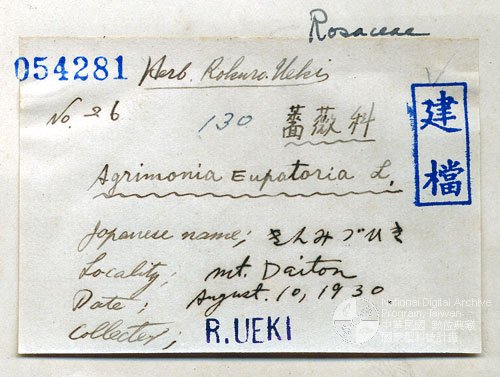 Rosaceae
054281 Herb. Rokuro. Ueki
No. 26 130 薔薇科
建檔
Agrimonia Eupatoria L.
Japanese name; きんみづひき
Locality; mt. Daiton
Date; August. 10, 1930
Collecter; R. UEKI
National Digital Archive
Program, Taiwan
中華民國 數位典藏
國家型科技計畫